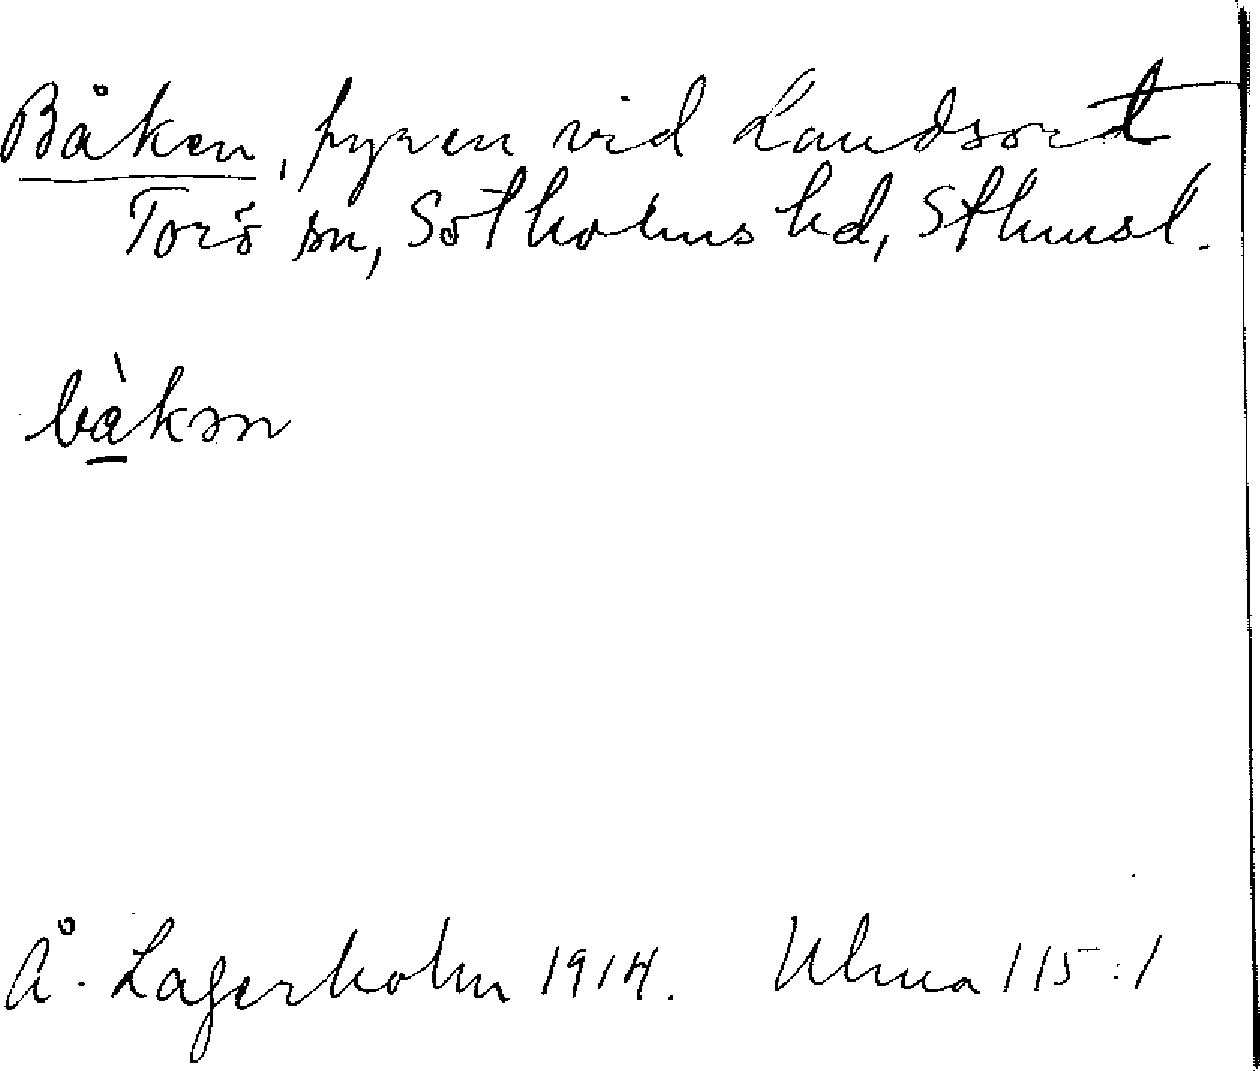 Båken, fyren vid Landsort
Torö sn, Sotholms hd, Sthmsl.
bàkən
Å. Lagerholm 1914. Ulma 115:1